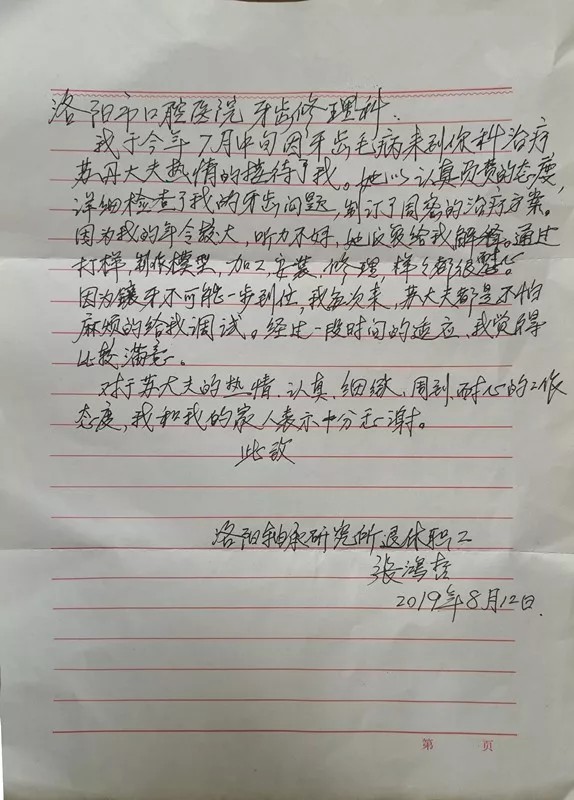 洛阳市口腔医院 牙齿修理科.
我于今年7月中旬因牙齿毛病来到你科治疗
苏丹大夫热情的接待了我。她以认真负责的态度,
详细检查了我的牙齿问题,制订了周密的治疗方案。
因为我的年令较大,听力不好,她反复给我解释。通过
打样,制作模型,加工,安装,修理,样样都很
因为镶牙不可能一步到位,我每次来,苏大夫都是不怕
麻烦的给我调试。经过一段时间的适应,我觉得
比较满意。
对于苏大夫的热情、认真、细致、周到、耐心的工作
态度,我和我的家人表示十分感谢。
此致
洛阳轴承研究所退休职工
张鸿哲
2019年8月12日.
第 页